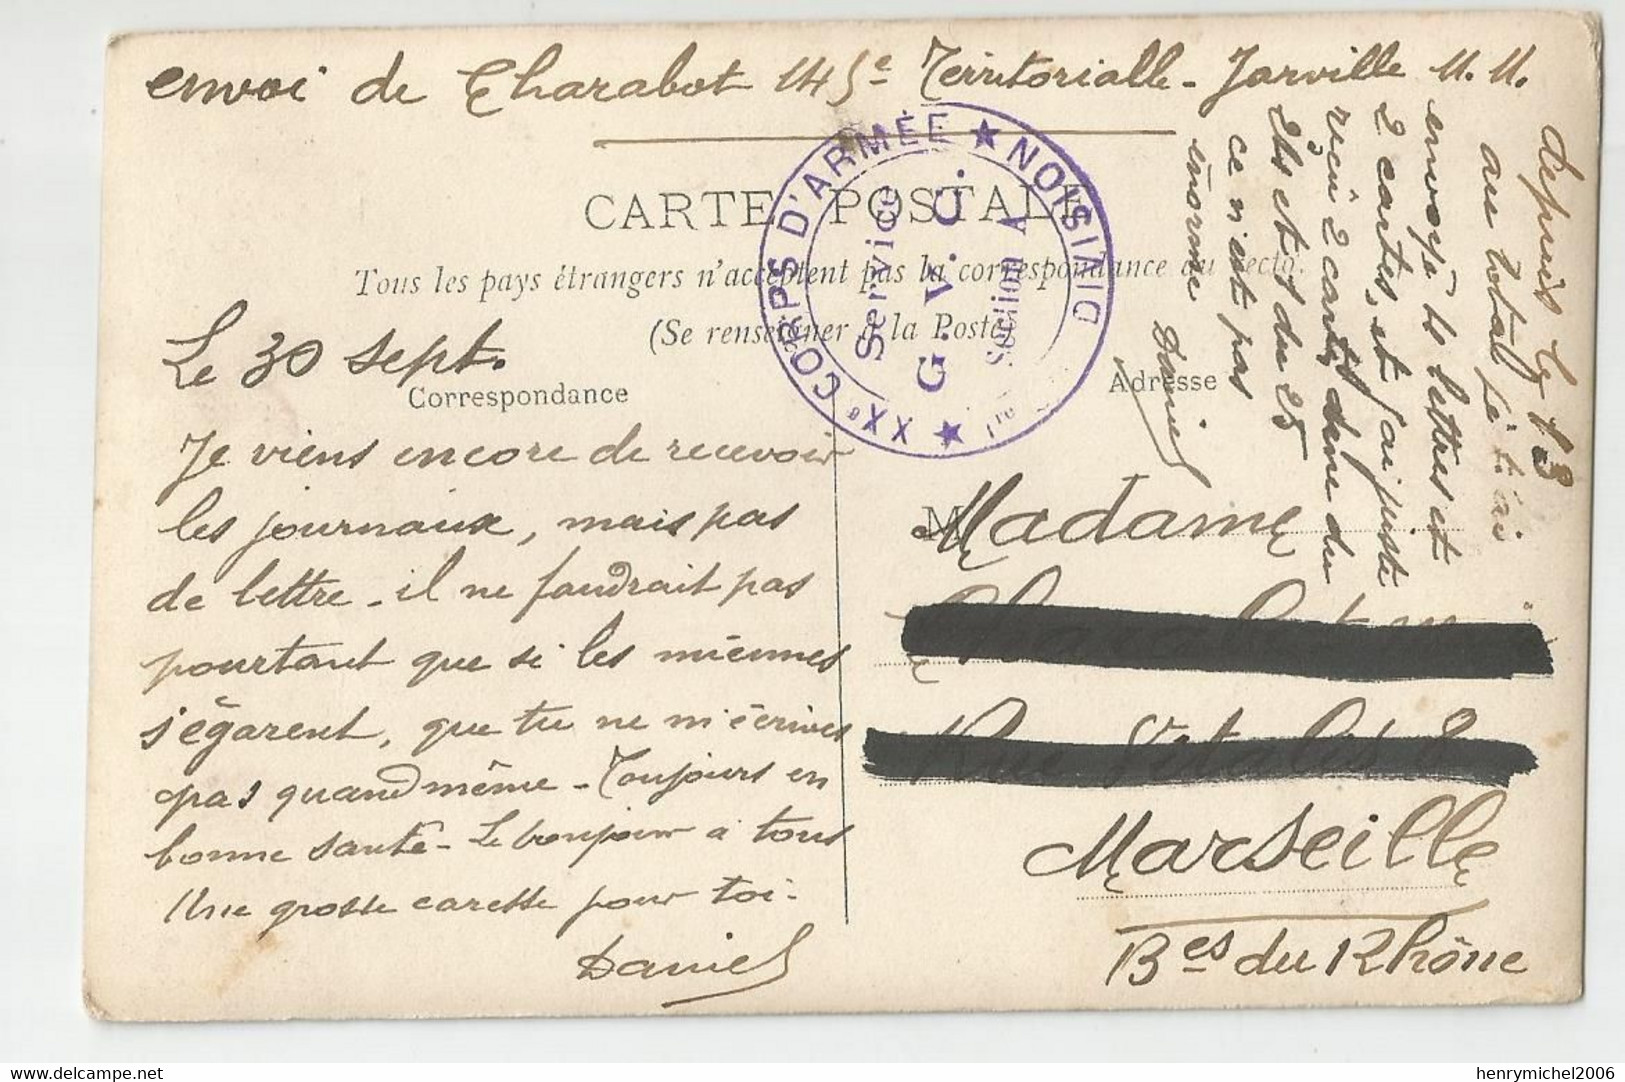 envoi de Charabot 145e Territorialle - Jarville M. M.
CARTE POSTALE
Tous les pays étrangers n'acceptent pas la correspondance au recto.
(Se renseigner à la Poste)
XXe CORPS D'ARMÉE ★ NOISIVID ★
Service
G. V. C.
Section A
Correspondance
Adresse
Le 30 sept.
Je viens encore de recevoir
les journaux, mais pas
de lettre - il ne faudrait pas
pourtant que si les miennes
s'égarent, que tu ne m'écrives
pas quand même - Toujours en
bonne santé - Le bonjour à tous
Une grosse caresse pour toi -
Daniel
Madame
Marseille
Bes du Rhône
depuis le 13
au total je t'ai
envoyé 4 lettres et
2 cartes, et j'ai juste
reçu 2 cartes, celle du
21 et du 25
ce n'est pas
énorme
Daniel
henrymichel2006